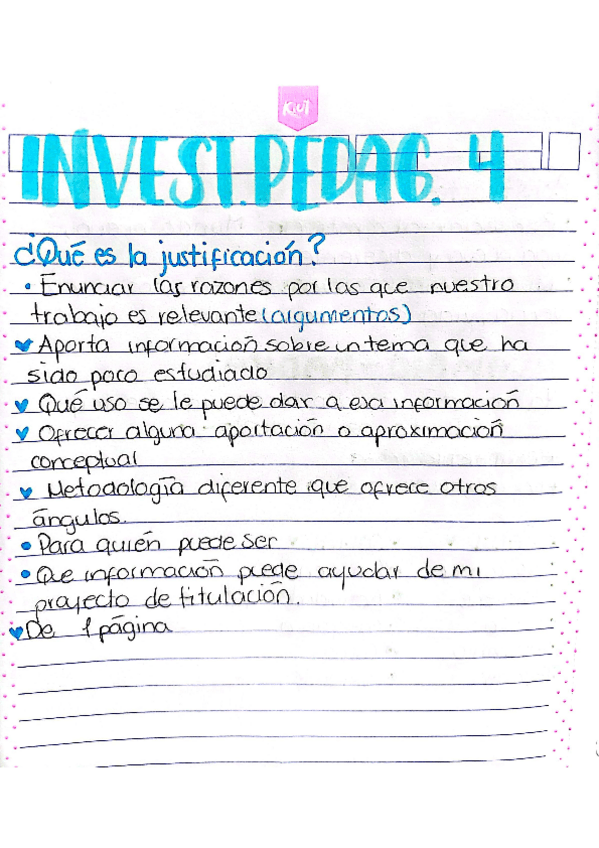 Kiut
INVEST.PEDAG. 4
¿Qué es la justificación?
• Enunciar las razones por las que nuestro
trabajo es relevante (argumentos)
♥ Aporta información sobre un tema que ha
sido poco estudiado
♥ Qué uso se le puede dar a esa información
♥ Ofrecer alguna aportación o aproximación
conceptual
♥ Metodología diferente que ofrece otros
ángulos.
• Para quién puede ser
• Que información puede ayudar de mi
proyecto de titulación.
♥ De 1 página